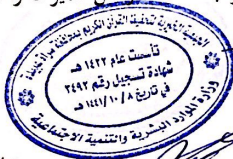 الجمعية الخيرية لتحفيظ القرآن الكريم بمنطقة
تأسست عام ١٤٢٢ هـ
شهادة تسجيل رقم ٣٤٩٢
في تاريخ ١٤٤١/١٠/٨ هـ
وزارة الموارد البشرية والتنمية الاجتماعية